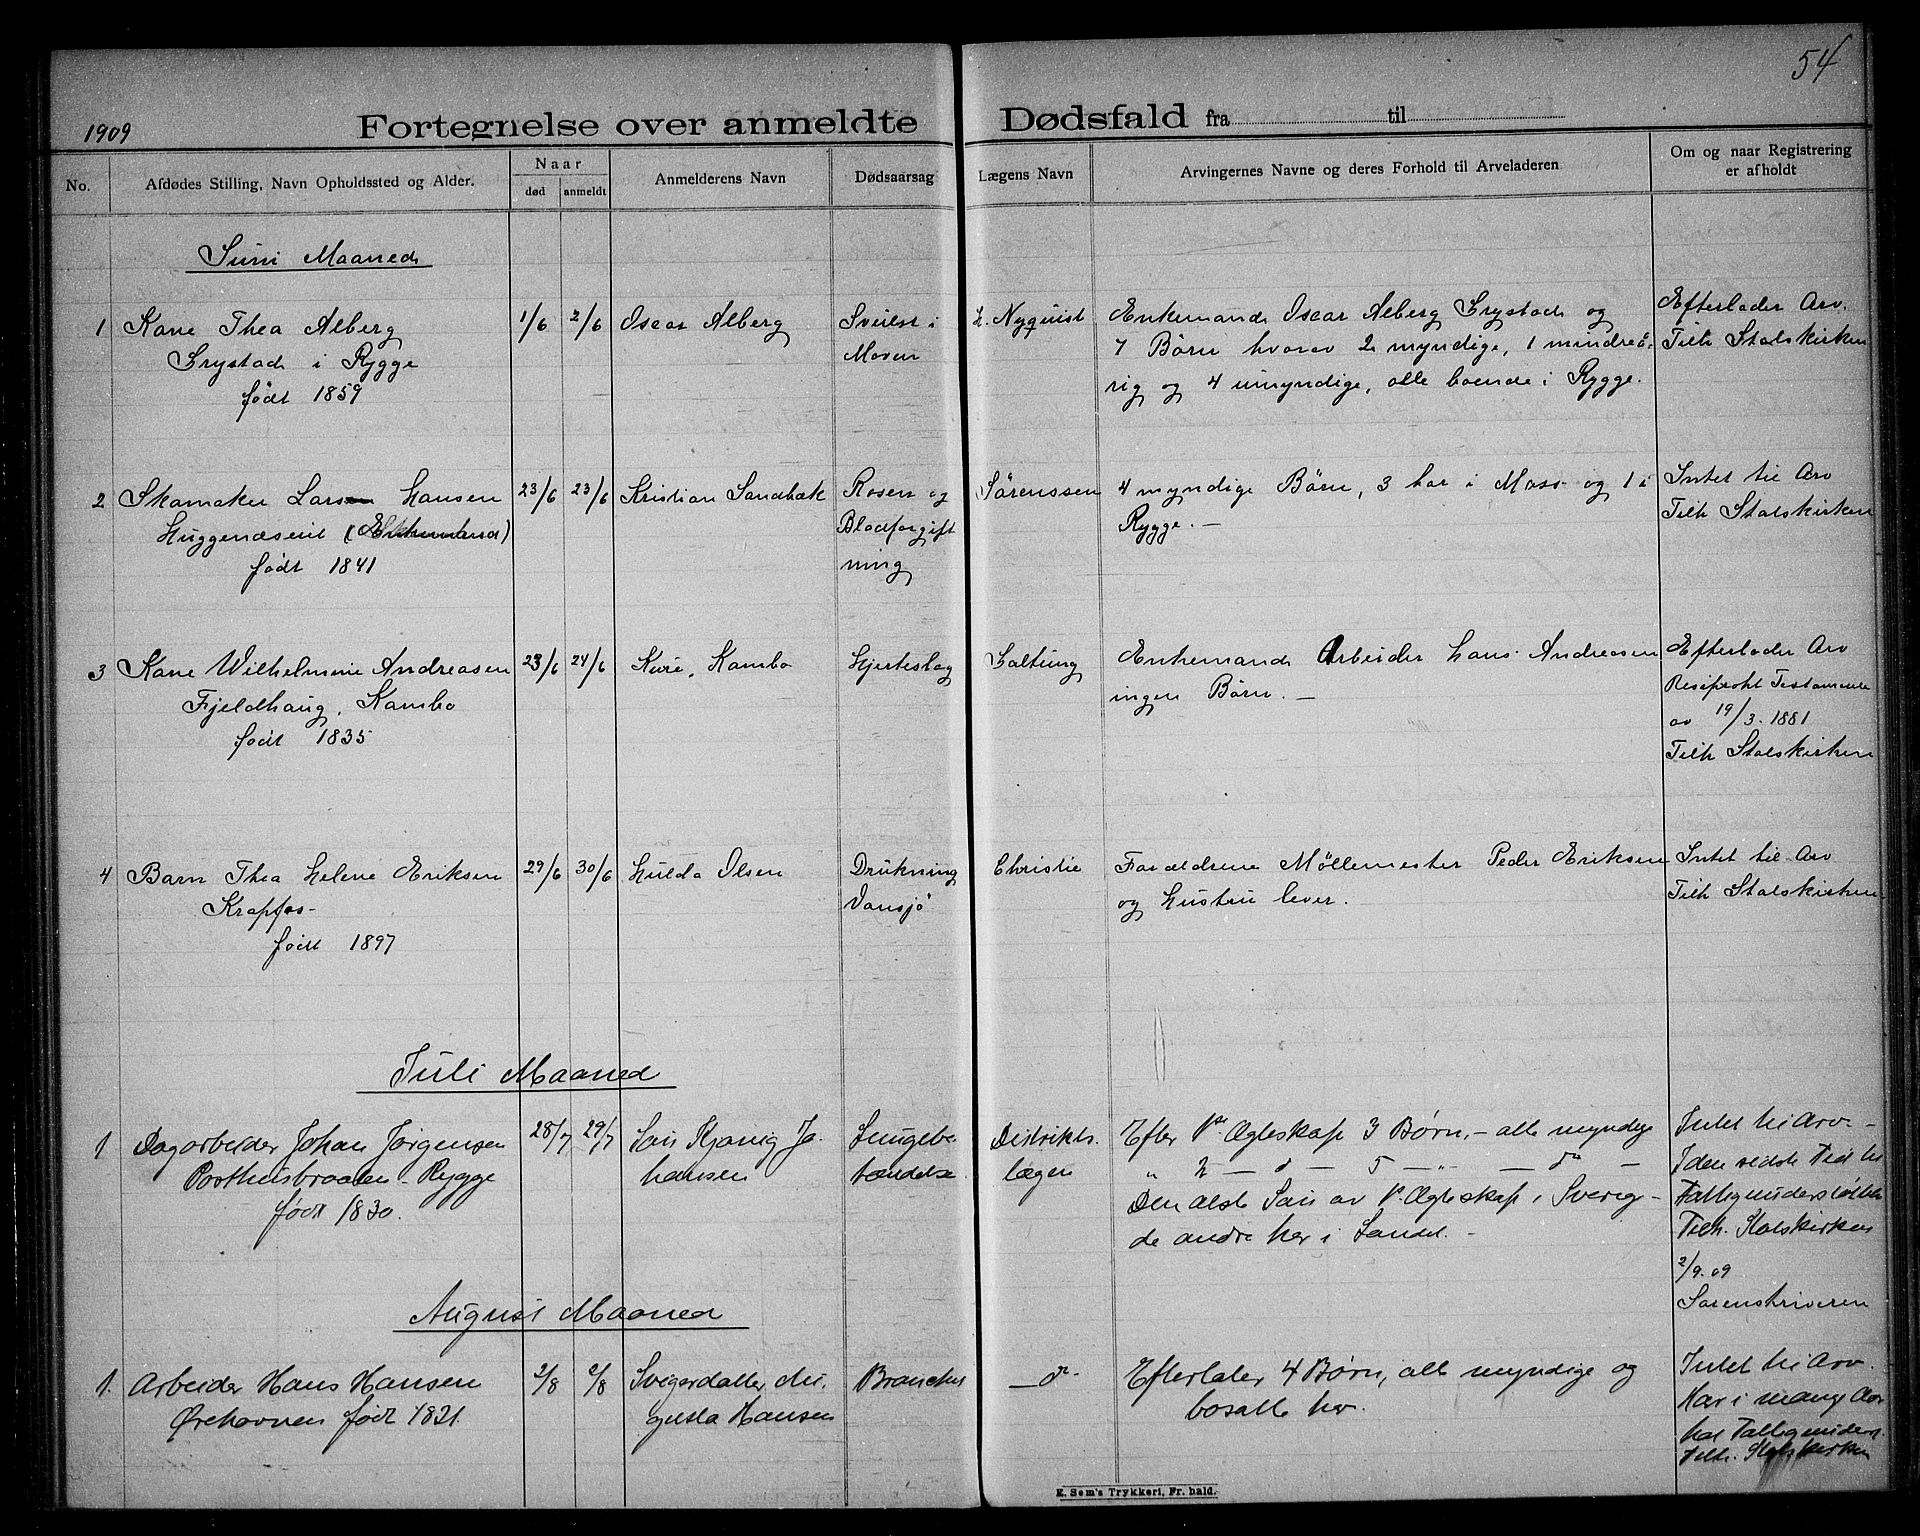 54
1909
Fortegnelse over anmeldte Dødsfald fra til
No.
Afdødes Stilling, Navn Opholdssted og Alder.
Naar
død
anmeldt
Anmelderens Navn
Dødsaarsag
Lægens Navn
Arvingernes Navne og deres Forhold til Arveladeren
Om og naar Registrering
er afholdt
Juni Maaned
1 Kone Thea Alberg 1/6 2/6 Oscar Alberg Svulst i Nyquist Enkemand Oscar Alberg Grystad og Efterlader Arv.
Grystad i Rygge Maven 7 Børn hvorav 2 myndige, 1 mindreå- Tilh Statskirken
født 1859 rig og 4 umyndige, alle boende i Rygge.
2 Skomaker Lars Hansen 23/6 23/6 Kristian Sandbæk Rosen og Sørenssen 4 myndige Børn, 3 bor i Moss og 1 i Intet til Arv
Huggenæs (Enkemand) Blodforgift Rygge. — Tilh Statskirken
født 1841 ning
3 Kone Wilhelmine Andreasen 23/6 24/6 Kure, Kambo Hjerteslag Saltung Enkemand Arbeider Hans Andreasen Efterlader Arv
Fjeldhaug, Kambo ingen Børn. — Resiprokt Testamente
født 1835 av 19/3-1881
Tilh Statskirken
4 Barn Thea Helene Eriksen 29/6 30/6 Hulda Olsen Drukning Christie Forældrene Møllemester Peder Eriksen Intet til Arv
Krapfos- Vansjø og Hustru lever. Tilh Statskirken
født 1897
Juli Maaned
1 Dagarbeider Johan Jørgensen 28/7 29/7 Søn Jo- Lungebe Distrikts- Efter 1ste Ægteskap 3 Børn, - alle myndige Intet til Arv -
Posthusbraaten - Rygge hansen tændelse lægen " 2 — d — 5 — " — do — I den sidste Tid
født 1830. Den ælste Søn av 1. Ægteskap i Sverig - Fattigunderstøttet
de andre her i Landet. - Tilh. Statskirken
2/9-09
Sorenskriveren
August Maaned
1. Arbeider Hans Hansen 2/8 2/8 Svigerdatter Au- Bronchit — do Efterlater 4 Børn, alle myndige og Intet til Arv.
Ørehavnen født 1821. gusta Hansen bosatte her. Har i mange Aar
hat Fattigunderst.
Tilh. Statskirken
E. Sem's Trykkeri, Fr. hald.